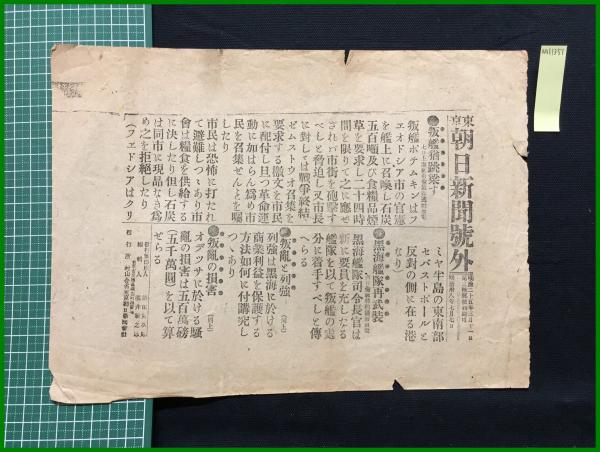 東京
朝日新聞號外
明治三十八年七月七日
叛艦猶跳梁す
叛艦ポテムキンはフ
エオドシア市の官憲
を艦上に召喚し石炭
五百噸及び食糧品煙
草を要求し二十四時
間を限りて之に應せ
されバ市街を砲撃す
べしと脅迫し又市長
に對しては戰爭終結、
ゼムストウオ召集を
要求する檄文を市民
に配付し且つ革命運
動に加はらん爲め市
民を召集せんとを囑
したり
市民は恐怖に打たれ
て避難しつゝあり市
會は糧食を供給する
に決したり但し石炭
は同市に現品なき爲
め之を拒絶したり
(フエドシアはクリ
ミヤ半島の東南部
セバストポールと
反對の側に在る港
なり)
黒海艦隊再武裝
黒海艦隊司令長官は
新に要員を充しなる
艦隊を以て叛艦の處
分に着手すべしと傳
へらる
叛亂と列強 (同上)
列強は黒海に於ける
商業利益を保護する
方法如何に付講究し
つゝあり
叛亂の損害 (同上)
オデツサに於ける騷
亂の損害は五百萬磅
(五千萬圓)を以て算
せらる